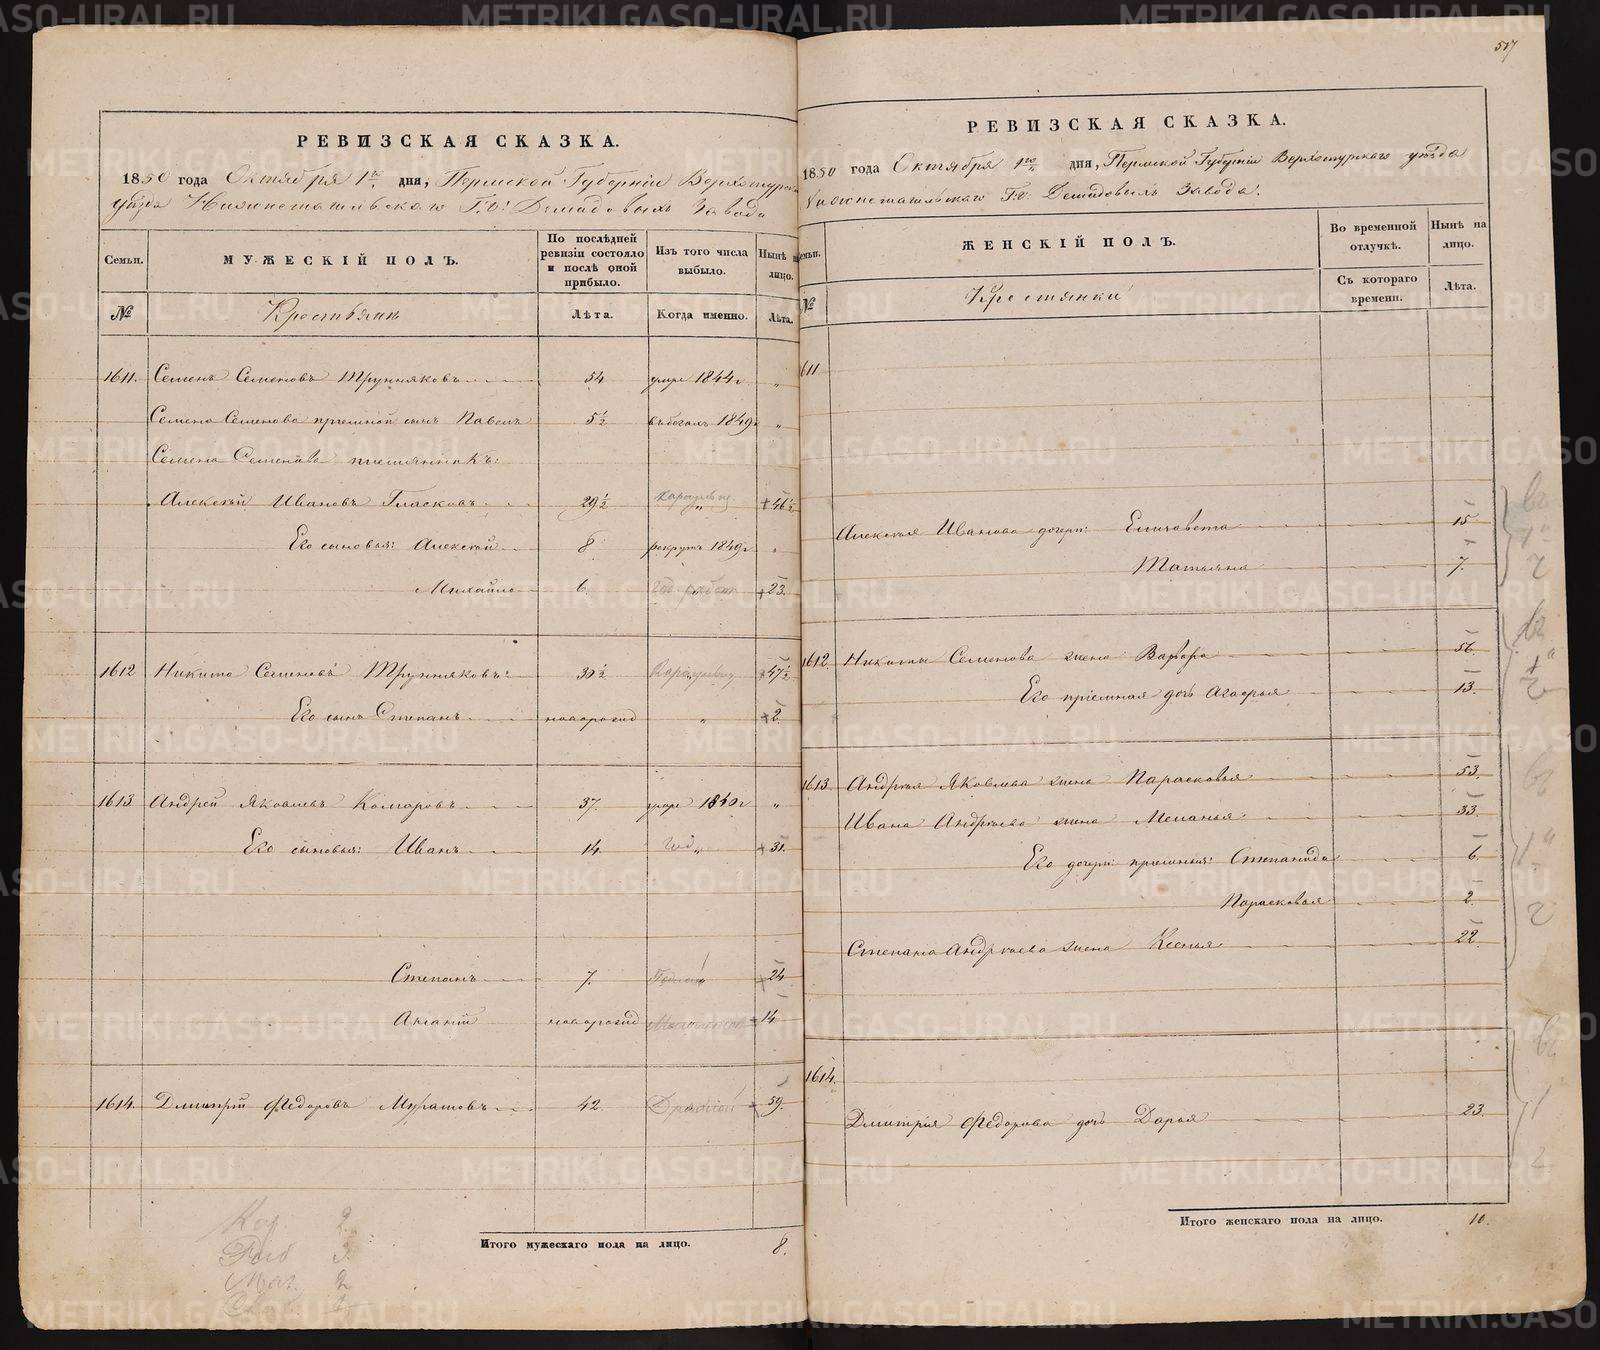 517
РЕВИЗСКАЯ СКАЗКА.
1850 года Октября 1го дня, Пермской Губерніи Верхотурскаго
уѣзда Нижнетагильскаго Г.г. Демидовыхъ Завода
Семьи.
МУЖЕСКІЙ ПОЛЪ.
По послѣдней ревизіи состояло и послѣ оной прибыло.
Изъ того числа выбыло.
Нынѣ на лицо.
№
Крестьяне
Лѣта.
Когда именно.
Лѣта.
1611. Семенъ Семеновъ Трунняковъ 54 умре 1844 г „
Семена Семенова пріемной сынъ Павелъ 5½ въ бѣгахъ 1849 г „
Семена Семенова племянникъ:
Алексѣй Ивановъ Гласковъ 29½ „ 46½
Его сыновья: Алексѣй 8 рекрутъ 1849 г „
Михайло 6. „ 23.
1612 Никита Семеновъ Трунняковъ 30½ „ 47½
Его сынъ Степанъ новорожд „ 2
1613 Андрей Яковлевъ Комаровъ 37. умре 1840 г „
Его сыновья: Иванъ 14 „ 31.
Степанъ 7. 24
Ананій новорожд 14
1614. Дмитрій Федоровъ Муратовъ 42. 59.
Итого мужескаго пола на лицо. 8.
РЕВИЗСКАЯ СКАЗКА.
1850 года Октября 1го дня, Пермской Губерніи Верхотурскаго уѣзда
Нижнетагильскаго Г.г. Демидовыхъ Завода.
Семьи.
ЖЕНСКІЙ ПОЛЪ.
Во временной отлучкѣ.
Нынѣ на лицо.
№
Крестьянки
Съ котораго времени.
Лѣта.
611
Алексѣя Иванова дочери: Елизавета 15
Татьяна 7.
1612. Никиты Семенова жена Варвара 56.
Его пріемная дочь Агафья 13.
1613. Андрея Яковлева жена Парасковья 53.
Ивана Андреева жена Меланья 33.
Его дочери пріемныя: Степанида 6.
Парасковья 2.
Степана Андреева жена Ксенья 22.
1614.
Дмитрія Федорова дочь Дарья 23.
Итого женскаго пола на лицо. 10.
METRIKI.GASO-URAL.RU